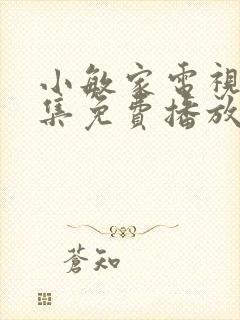 小敏家電視
集免費播放
蒼知